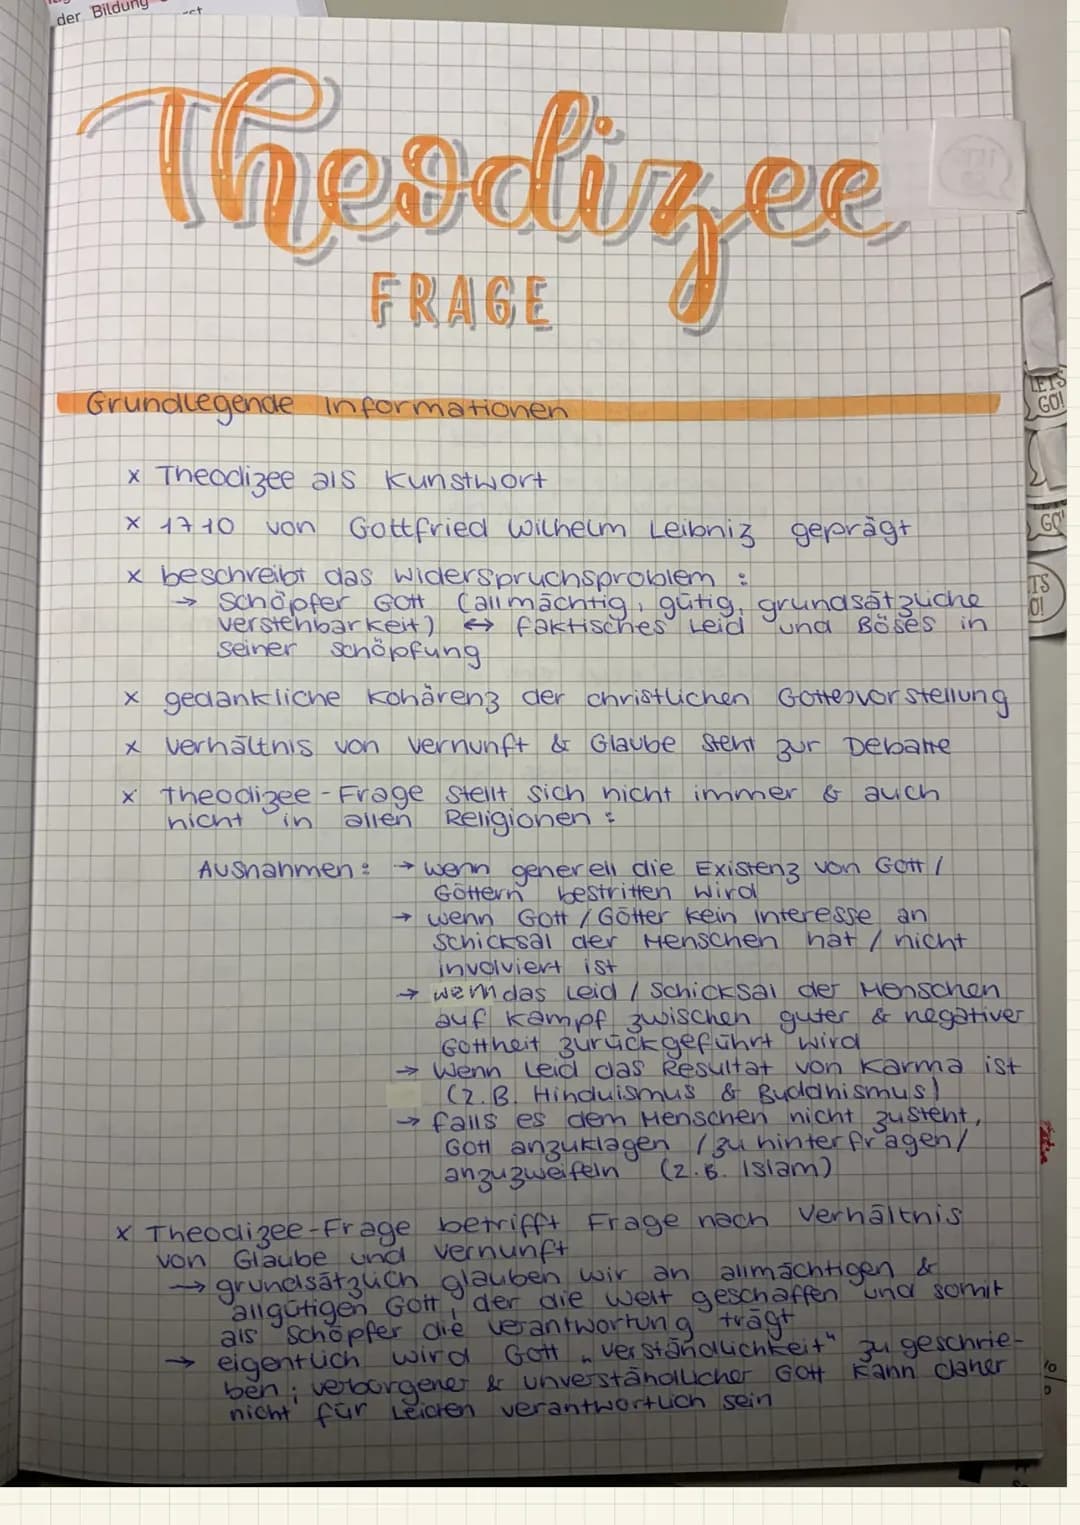 der Bildung
Theodizee
FRAGE
LETS
GO!
Grundlegende Informationen
x Theodizee als Kunstwort
x 1710 von Gottfried Wilhelm Leibniz geprägt
GO!
x beschreibt das Widerspruchsproblem :
→ Schöpfer Gott (allmächtig, gütig, grundsätzliche
Verstehbarkeit) ↔ faktisches Leid und Böses in
seiner Schöpfung
x gedankliche Kohärenz der christlichen Gottesvorstellung
x Verhältnis von Vernunft & Glaube steht zur Debatte
x Theodizee-Frage stellt sich nicht immer & auch
nicht in allen Religionen :
Ausnahmen : → wenn generell die Existenz von Gott /
Göttern bestritten wird
→ wenn Gott / Götter kein Interesse an
Schicksal der Menschen hat / nicht
involviert ist
→ wenn das Leid / Schicksal der Menschen
auf Kampf zwischen guter & negativer
Gottheit zurückgeführt wird
→ wenn Leid das Resultat von Karma ist
(z.B. Hinduismus & Buddhismus)
→ falls es dem Menschen nicht zusteht,
Gott anzuklagen / zu hinterfragen /
anzuzweifeln (z.B. Islam)
x Theodizee-Frage betrifft Frage nach Verhältnis
von Glaube und Vernunft
→ grundsätzlich glauben wir an allmächtigen &
allgütigen Gott, der die Welt geschaffen und somit
als Schöpfer die Verantwortung trägt
→ eigentlich wird Gott „Verständlichkeit“ zu geschrie-
ben ; verborgener & unverständlicher Gott kann daher
nicht für Leiden verantwortlich sein